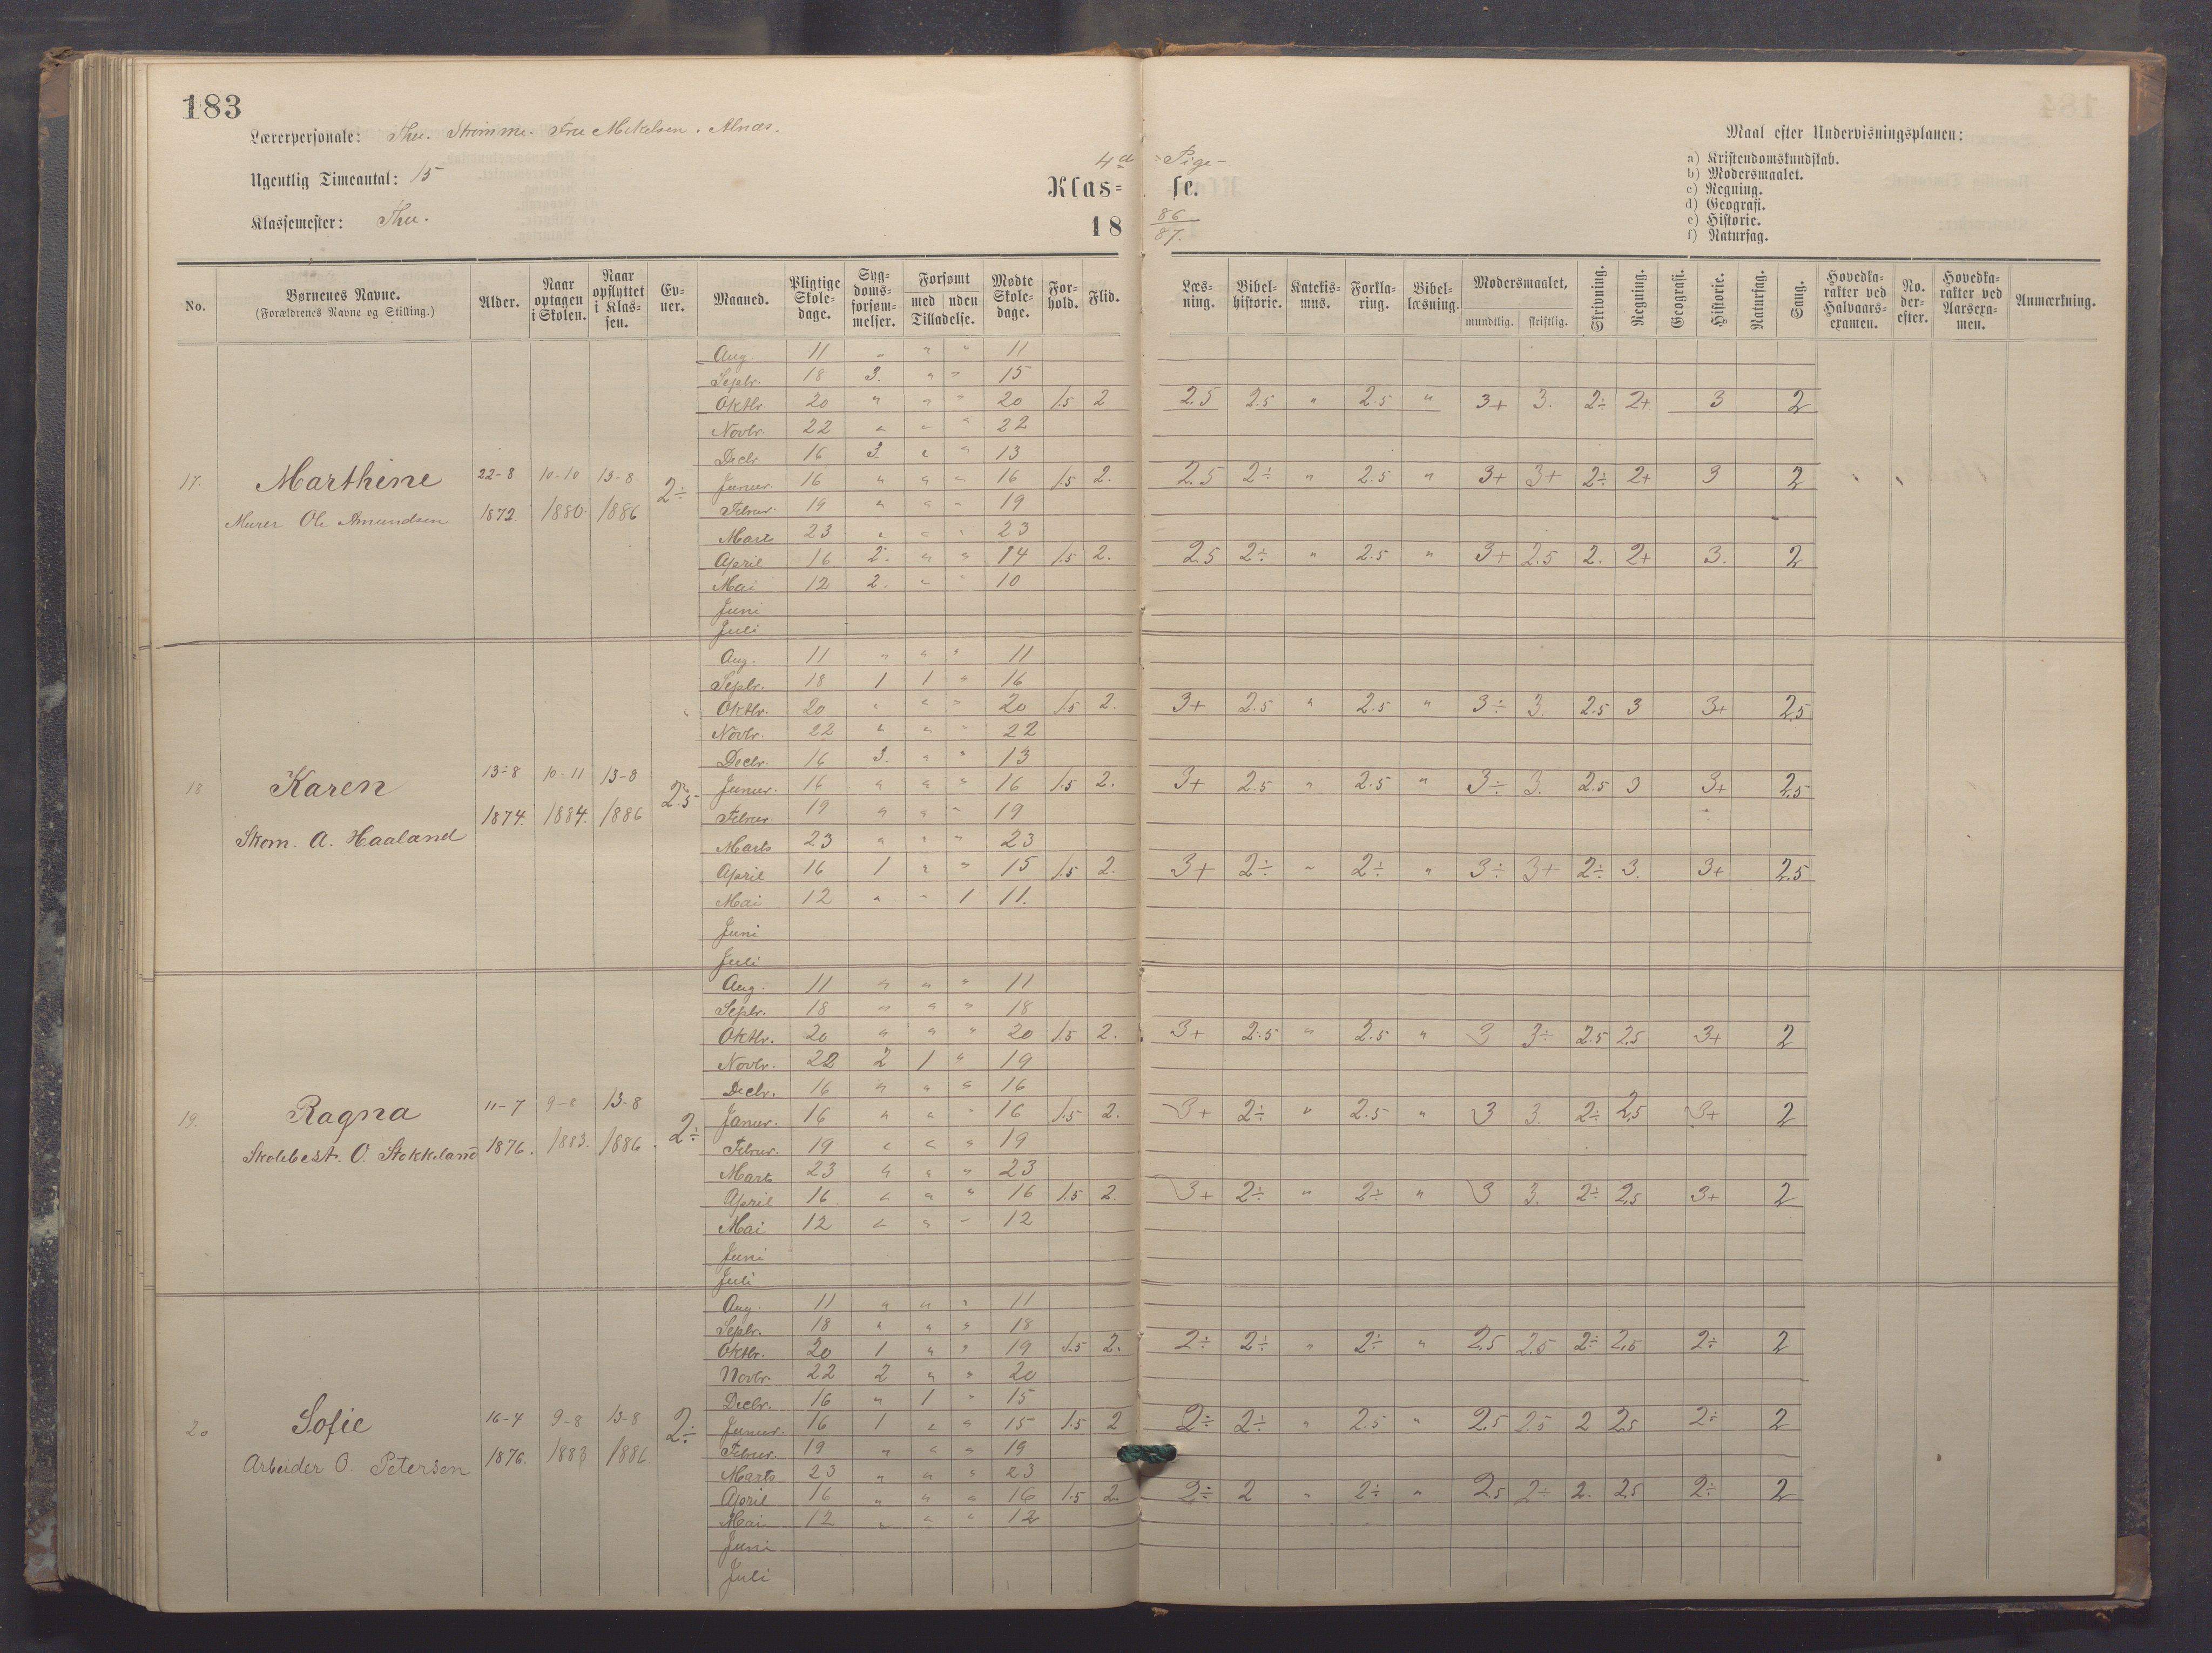 183
Lærerpersonale: Thu. Strømme. Fru Mikelsen. Alnæs.
Ugentlig Timeantal: 15
Klassemester: Thu.
4de Pige-
Klas= se.
18 86/87.
Maal efter Undervisningsplanen:
a) Kristendomskundskab.
b) Modersmaalet.
c) Regning.
d) Geografi.
e) Historie.
f) Naturfag.
No. Børnenes Navne. (Forældrenes Navne og Stilling.) Alder. Naar optagen i Skolen. Naar opflyttet i Klassen. Evner. Maaned. Pligtige Skoledage. Sygdomsforsømmelser. Forsømt med uden Tilladelse. Mødte Skoledage. Forhold. Flid. Læsning. Bibelhistorie. Katekismus. Forklaring. Bibellæsning. Modersmaalet, mundtlig. skriftlig. Skrivning. Regning. Geografi. Historie. Naturfag. Sang. Hovedkarakter ved Halvaarsexamen. No. derefter. Hovedkarakter ved Aarsexamen. Anmærkning.
17. Marthine 22-8 10-10 13-8 2÷
Murer Ole Amundsen 1872. 1880 1886
Aug. 11 „ „ „ 11
Septbr. 18 3. „ „ 15
Oktbr. 20 „ „ „ 20 1.5 2 2.5 2.5 „ 2.5 „ 3+ 3. 2÷ 2+ 3 2
Novbr. 22 „ „ „ 22
Decbr. 16 3. „ „ 13
Januar. 16 „ „ „ 16 1.5 2. 2.5 2÷ „ 2.5 „ 3+ 3+ 2÷ 2+ 3 2
Februar. 19 „ „ „ 19
Marts 23 „ „ „ 23
April 16 2. „ „ 14 1.5 2. 2.5 2÷ „ 2.5 „ 3+ 2.5 2. 2+ 3. 2
Mai 12 2. „ „ 10
Juni
Juli
18 Karen 13-8 10-11 13-8 2.5
Skom. A. Haaland 1874. 1884. 1886
Aug. 11 „ „ „ 11
Septbr. 18 1 1 „ 16
Oktbr. 20 „ „ „ 20 1.5 2. 3+ 2.5 „ 2.5 „ 3÷ 3. 2.5 3 3+ 2.5
Novbr. 22 „ „ „ 22
Decbr. 16 3. „ „ 13
Januar. 16 „ „ „ 16 1.5 2. 3+ 2.5 „ 2.5 „ 3÷ 3. 2.5 3 3+ 2.5
Februar 19 „ „ „ 19
Marts 23 „ „ „ 23
April 16 1 „ „ 15 1.5 2. 3+ 2÷ „ 2÷ „ 3÷ 3+ 2÷ 3. 3+ 2.5
Mai 12 „ „ 1 11.
Juni
Juli
19. Ragna 11-7 9-8 13-8 2÷
Skolebest. O. Stokkeland 1876. 1883. 1886.
Aug. 11 „ „ „ 11
Septbr. 18 „ „ „ 18
Oktbr. 20 „ „ „ 20 1.5 2. 3+ 2.5 „ 2.5 „ 3 3÷ 2.5 2.5 3+ 2
Novbr. 22 2 1 „ 19
Decbr. 16 „ „ „ 16
Januar. 16 „ „ „ 16 1.5 2. 3+ 2÷ „ 2.5 „ 3 3. 2÷ 2.5 3+ 2
Februar. 19 „ „ „ 19
Marts 23 „ „ „ 23
April 16 „ „ „ 16 1.5 2. 3+ 2÷ „ 2÷ „ 3 3. 2÷ 2.5 3+ 2
Mai 12 „ „ „ 12
Juni
Juli
20 Sofie 16-4 9-8 13-8 2÷
Arbeider O. Petersen 1876. 1883 1886
Aug. 11 „ „ „ 11
Septbr. 18 „ „ „ 18
Oktbr. 20 1 „ „ 19 1.5 2. 2÷ 2÷ „ 2÷ „ 2.5 2.5 2÷ 2.5 2÷ 2
Novbr. 22 2 „ „ 20
Decbr. 16 „ 1 „ 15
Januar. 16 1 „ „ 15 1.5 2 2÷ 2÷ „ 2.5 „ 2.5 2.5 2 2.5 2÷ 2
Februar. 19 „ „ „ 19
Marts 23 „ „ „ 23
April 16 „ „ „ 16 1.5 2. 2÷ 2 „ 2÷ „ 2.5 2÷ 2. 2.5 2÷ 2
Mai 12 „ „ „ 12
Juni
Juli